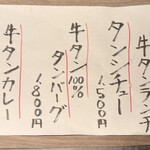 牛タンランチ
タンシチュー
1.500円
牛タン100%
タンバーグ
1.800円
牛タンカレー